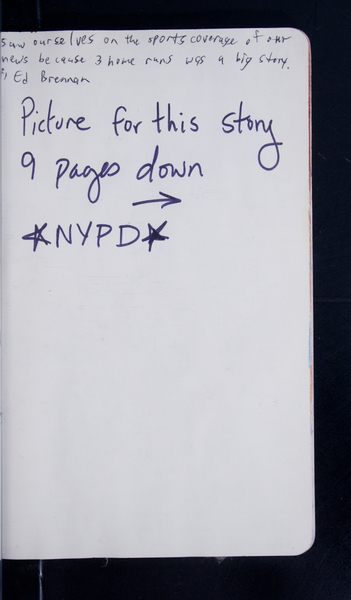 saw ourselves on the sports coverage of our
news because 3 home runs was a big story.
Ed Brennan
Picture for this story
9 pages down
→
★NYPD★